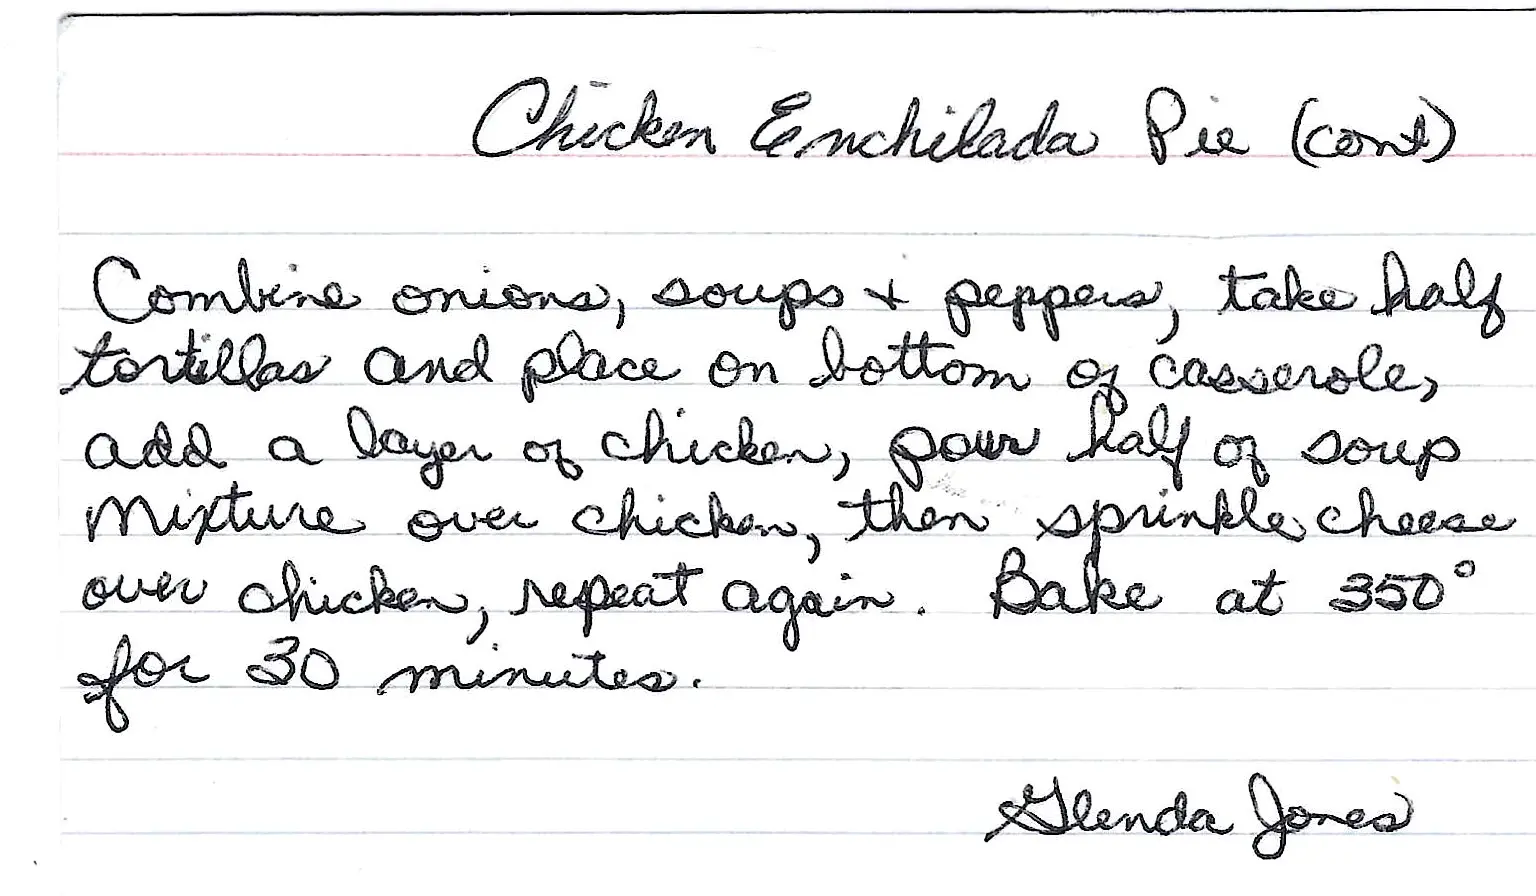 Chicken Enchilada Pie (cont)
Combine onions, soups + peppers, take half
tortillas and place on bottom of casserole,
add a layer of chicken, pour half of soup
mixture over chicken, then sprinkle cheese
over chicken, repeat again. Bake at 350°
for 30 minutes.
Glenda Jones